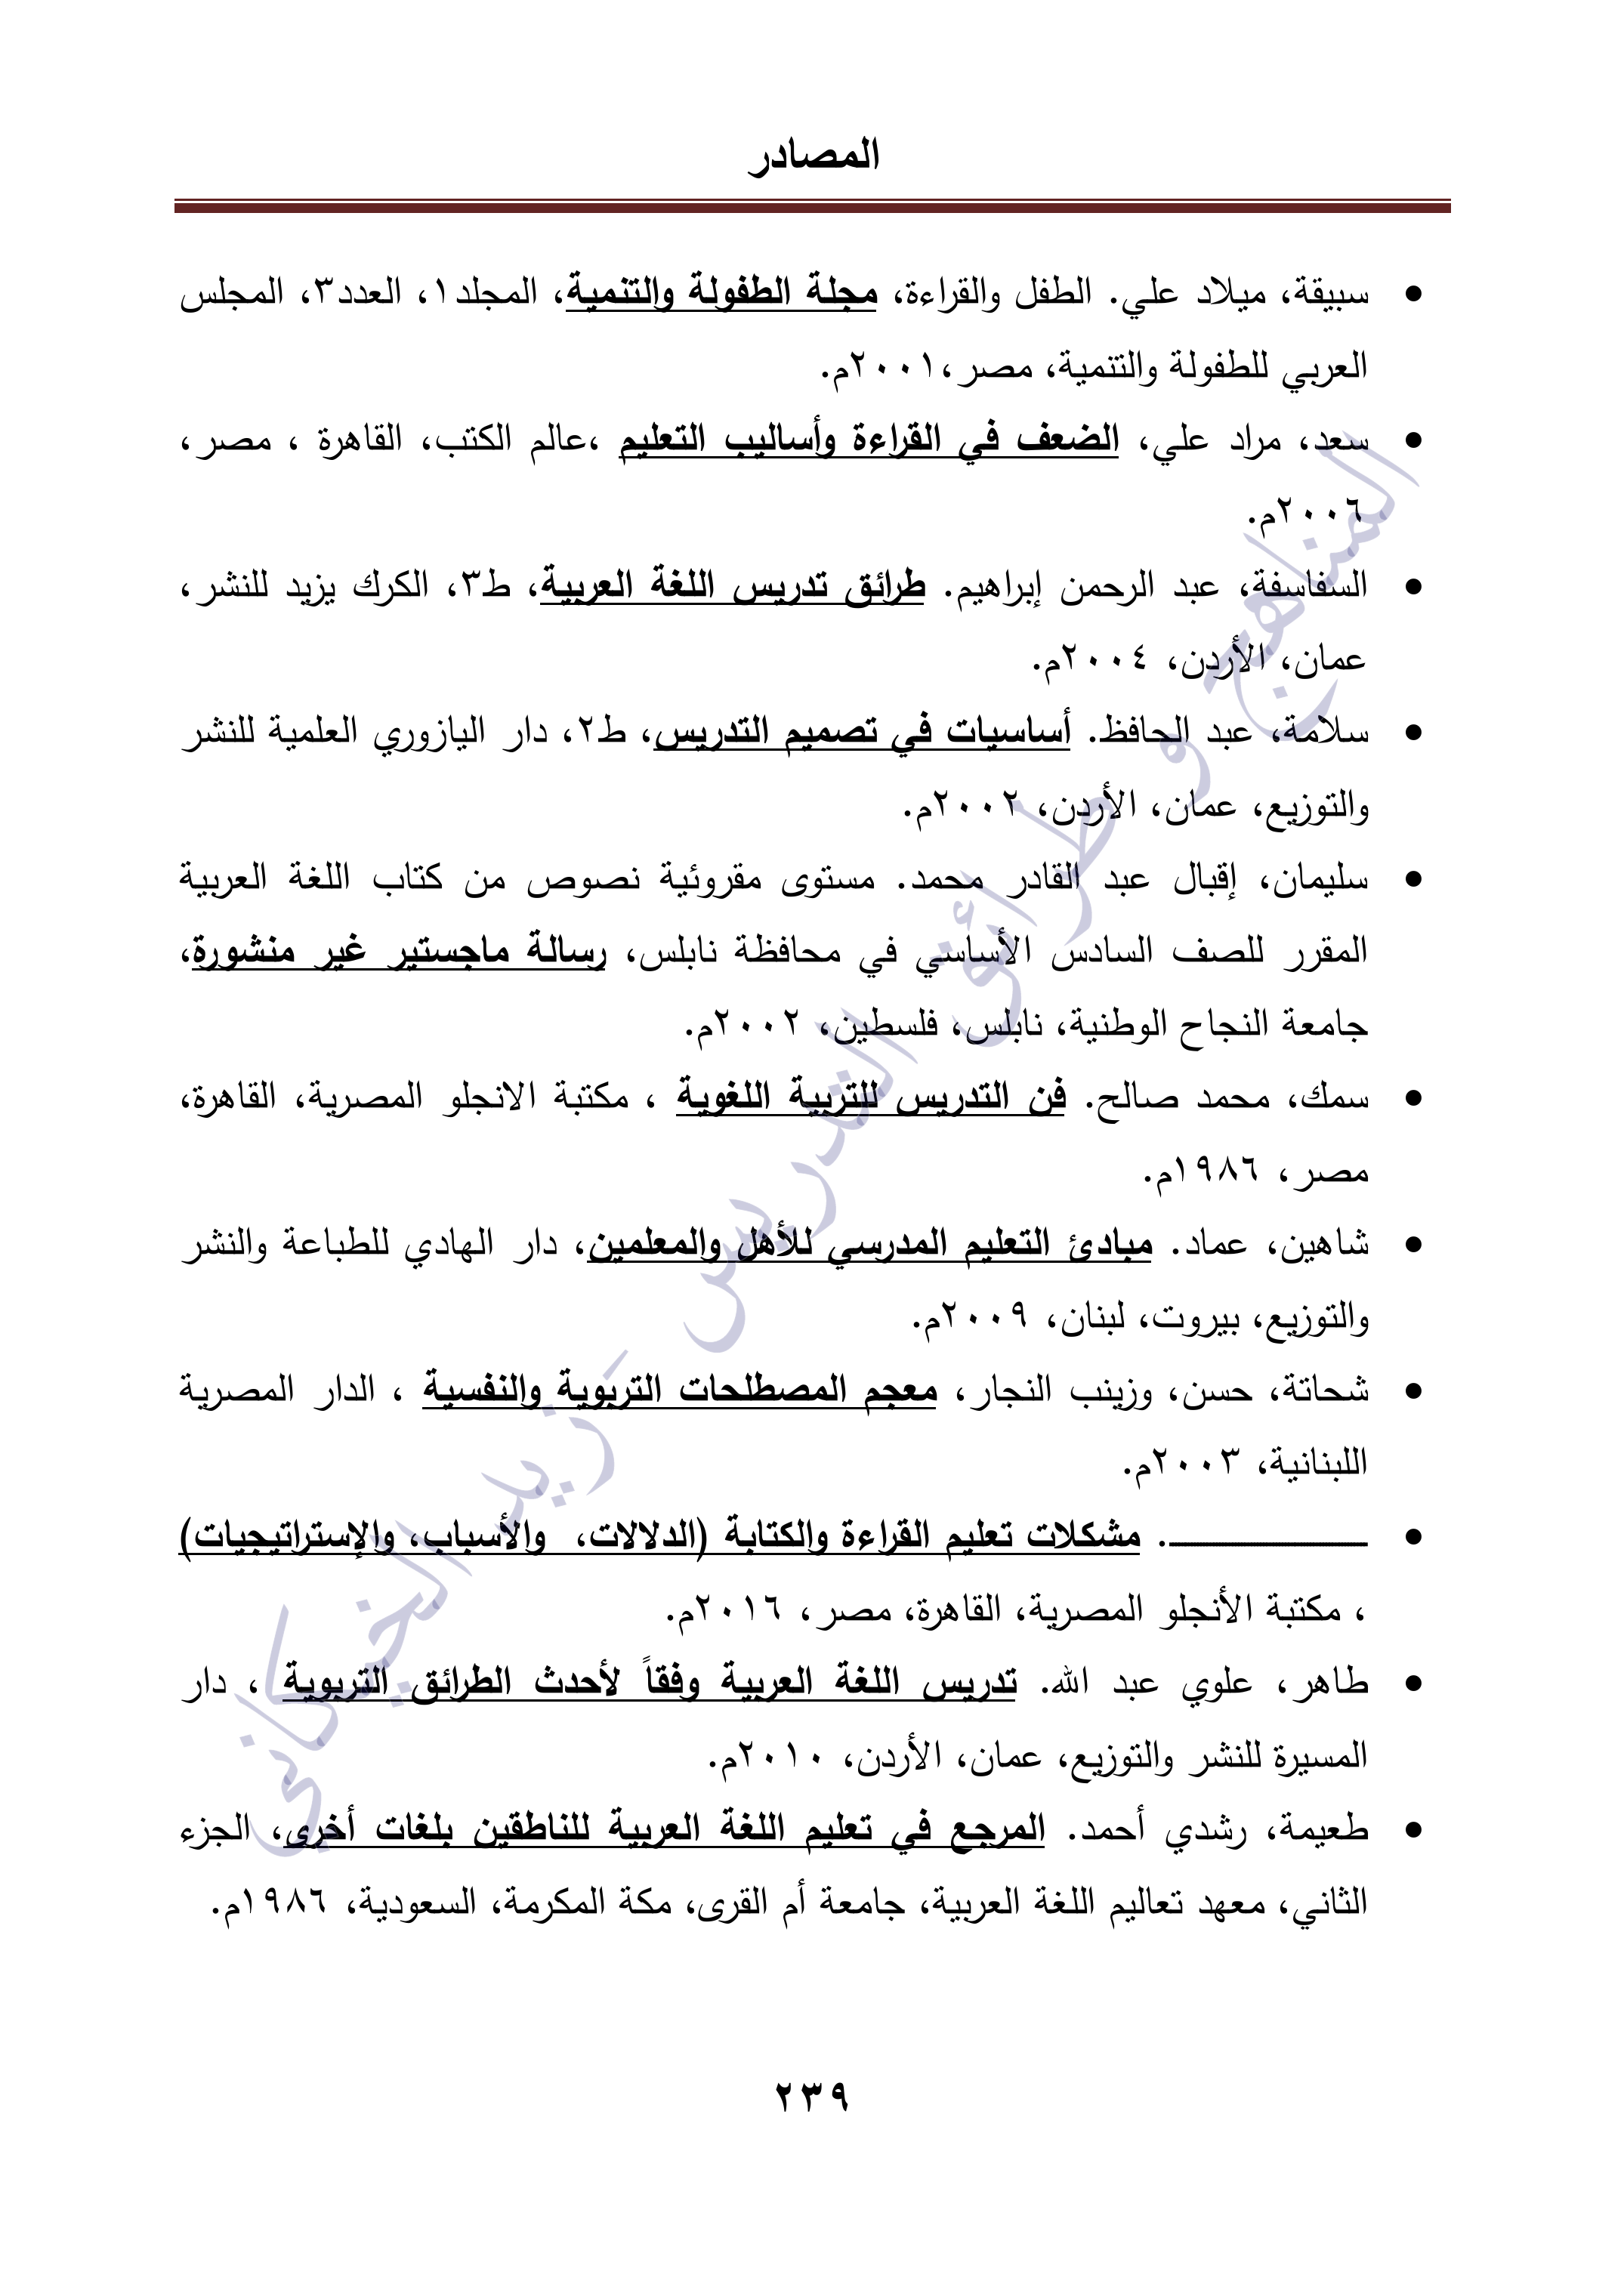 المصادر
• سبيقة، ميلاد علي. الطفل والقراءة، مجلة الطفولة والتنمية، المجلد١، العدد٣، المجلس
العربي للطفولة والتنمية، مصر،٢٠٠١م.
• سعد، مراد علي، الضعف في القراءة وأساليب التعليم ،عالم الكتب، القاهرة ، مصر،
٢٠٠٦م.
• السفاسفة، عبد الرحمن إبراهيم. طرائق تدريس اللغة العربية، ط٣، الكرك يزيد للنشر،
عمان، الأردن، ٢٠٠٤م.
• سلامة، عبد الحافظ. أساسيات في تصميم التدريس، ط٢، دار اليازوري العلمية للنشر
والتوزيع، عمان، الأردن، ٢٠٠٢م.
• سليمان، إقبال عبد القادر محمد. مستوى مقروئية نصوص من كتاب اللغة العربية
المقرر للصف السادس الأساسي في محافظة نابلس، رسالة ماجستير غير منشورة،
جامعة النجاح الوطنية، نابلس، فلسطين، ٢٠٠٢م.
• سمك، محمد صالح. فن التدريس للتربية اللغوية ، مكتبة الانجلو المصرية، القاهرة،
مصر، ١٩٨٦م.
• شاهين، عماد. مبادئ التعليم المدرسي للأهل والمعلمين، دار الهادي للطباعة والنشر
والتوزيع، بيروت، لبنان، ٢٠٠٩م.
• شحاتة، حسن، وزينب النجار، معجم المصطلحات التربوية والنفسية ، الدار المصرية
اللبنانية، ٢٠٠٣م.
• ـــــــــــــــــ. مشكلات تعليم القراءة والكتابة (الدلالات، والأسباب، والإستراتيجيات)
، مكتبة الأنجلو المصرية، القاهرة، مصر، ٢٠١٦م.
• طاهر، علوي عبد الله. تدريس اللغة العربية وفقاً لأحدث الطرائق التربوية ، دار
المسيرة للنشر والتوزيع، عمان، الأردن، ٢٠١٠م.
• طعيمة، رشدي أحمد. المرجع في تعليم اللغة العربية للناطقين بلغات أخرى، الجزء
الثاني، معهد تعاليم اللغة العربية، جامعة أم القرى، مكة المكرمة، السعودية، ١٩٨٦م.
٢٣٩
المناهج و طرائق التدريس - زيد الخيكاني